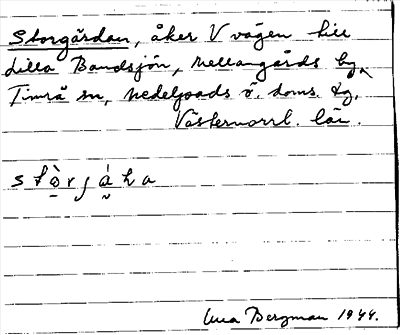 Storgårdan, åker V vägen till
Lilla Bandsjön, Mellangårds by,
Timrå sn, Medelpads ö. doms. tg,
Västernorrl. län.
Bergman 1944.